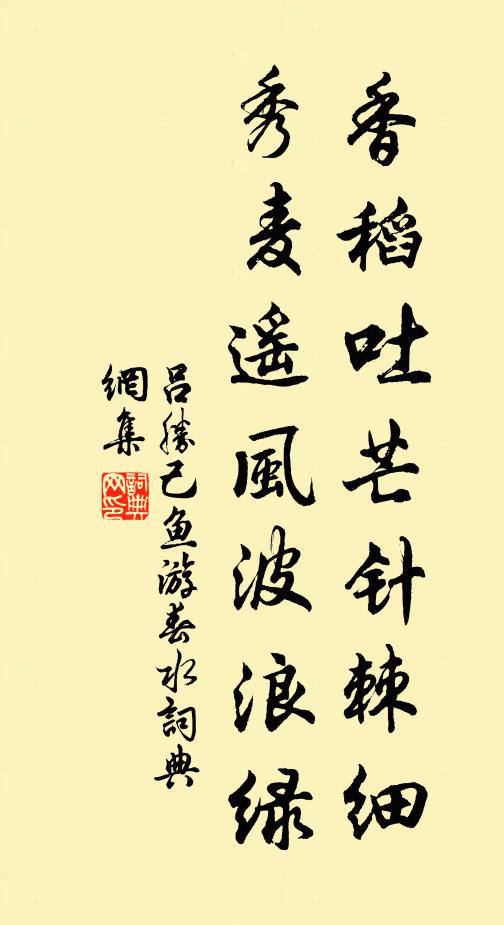 香稻吐芒针棘细
秀麦遥风波浪绿
吕勝己鱼游春水詞典
網集
詞典
网印